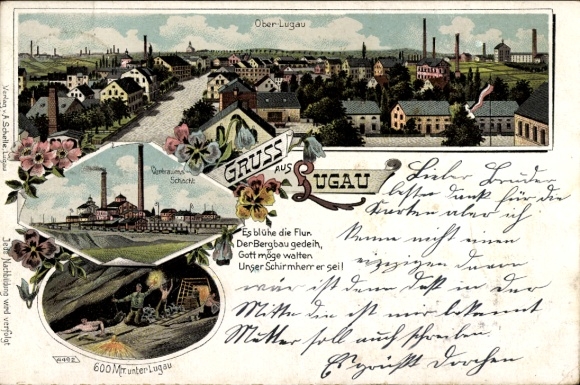 Ober-Lugau
Verlag v. A. Schelle, Lugau
GRUSS
AUS
LUGAU
Vertrauens-
Schacht.
Es blühe die Flur
Der Bergbau gedeih,
Gott möge walten
Unser Schirmherr er sei!
Jede Nachbildung wird verfolgt
6492
600 Mtr. unter Lugau
Lieber Bruder
besten Dank für die
Karten aber ich
kenne nicht einen
einzigen davon
war ist denn daß in der
Mitte die ist mir bekannt
Mutter soll auch schreiben
Es grüßt